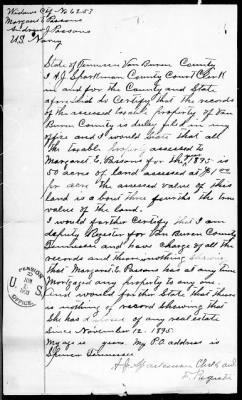 Widows Ctf. No 6257
Margaret E Parsons
Andrew J Parsons
U.S. Navy
State of Tennessee Van Buren County
I A.J. Sparkman County Court Clerk
in and for the County and State
aforesaid do Certify that the records
of the assessed taxable property of Van
Buren County is duly filed in my
office and I would State that all
the taxable property assessed to
Margaret E. Parsons for the 1895 is
50 acres of land assessed at $1.00
per acre the assessed value of this
land is about three fourths the true
value of the land.
I would further Certify that I am
deputy Register for Van Buren County
Tennessee and have charge of all the
records and there is nothing showing
that Margaret E. Parsons has at any time
Mortgaged any property to any one.
And would further State that there
is nothing of record showing that
She has disposed of any real estate
Since November 12. 1895.
My age is years. My P.O. address is
Spencer Tennessee
A.J. Sparkman Clerk and
D. Register
PENSION
U.S.
OFFICE